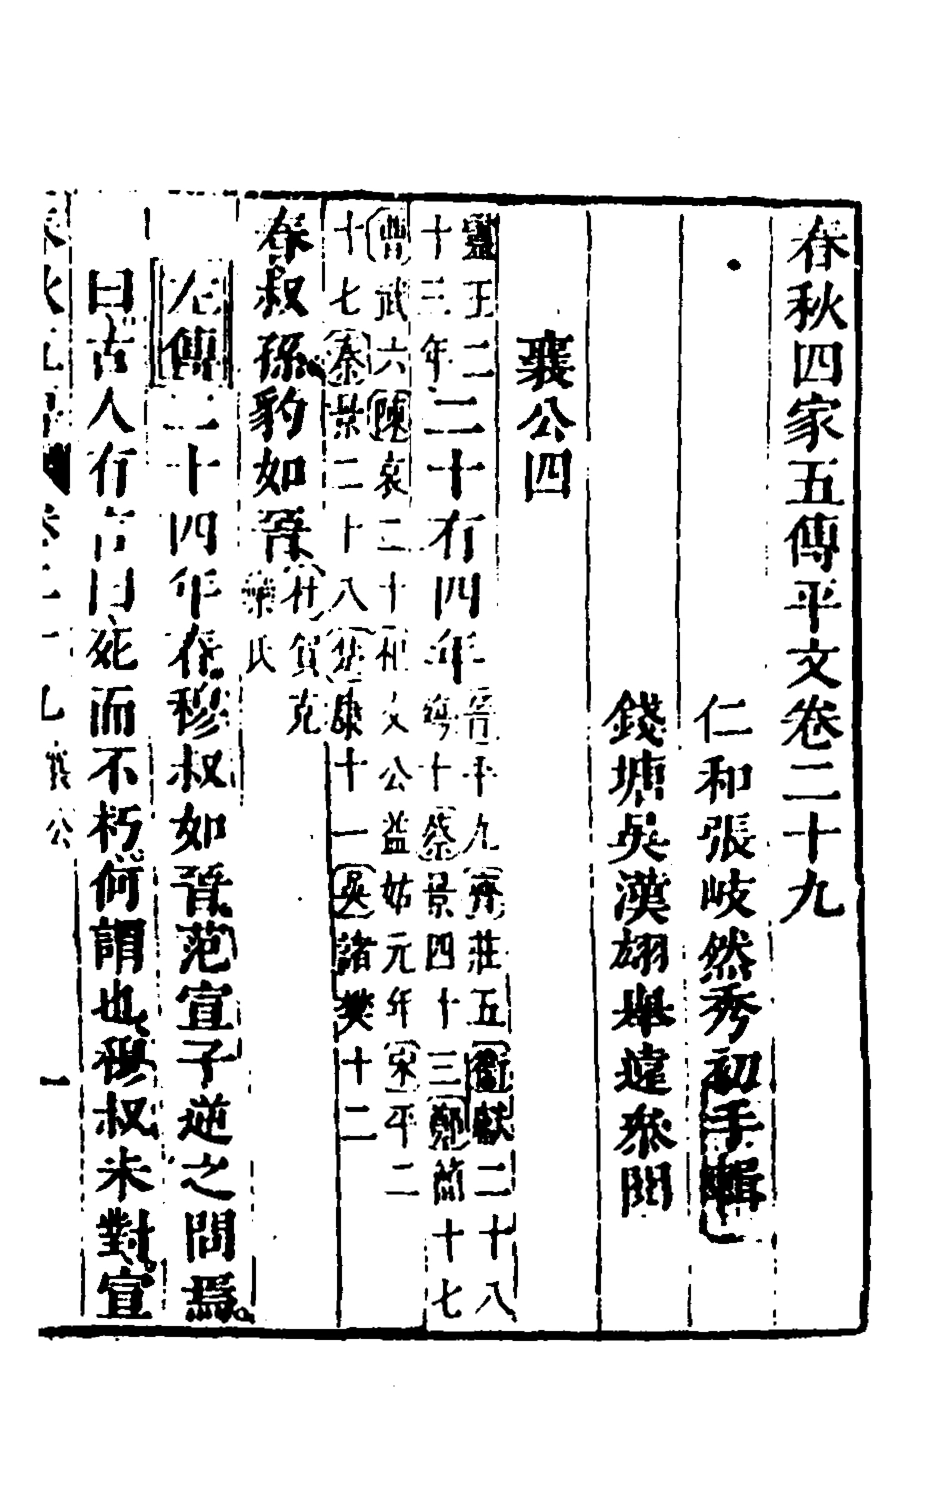 春秋四家五傳平文卷二十九
仁和張岐然秀初手輯
錢塘吳漢翊舉違叅閱
襄公四
靈王二十三年二十有四年晉平九齊莊五衞獻二十八
蔡景四十三鄭簡十七
曹武六陳哀二十杞文公益姑元年宋平二
十七秦景二十八楚康十一吳諸樊十二
春叔孫豹如晉杜賀克欒氏
左傳二十四年春穆叔如晉范宣子逆之問焉
曰古人有言曰死而不朽何謂也穆叔未對宣
卷二十九 襄公 一